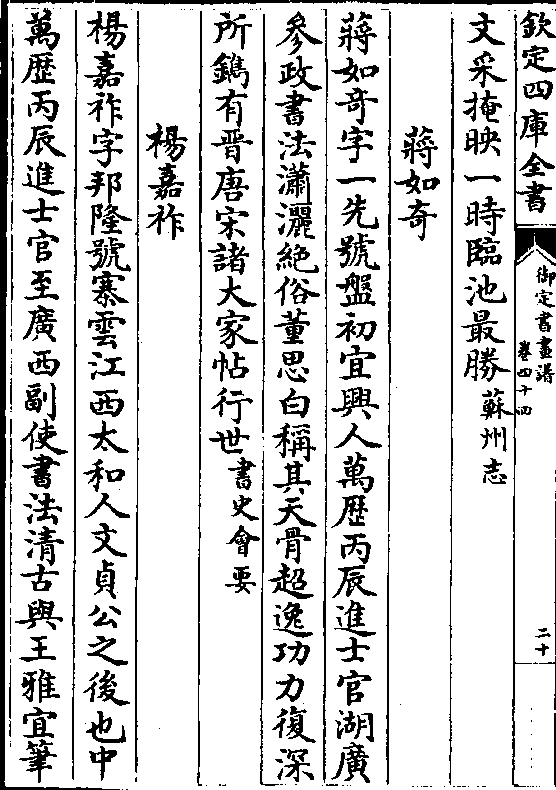 欽定四庫全書
御定書畫譜
卷四十四
二十
文采掩映一時臨池最勝蘇州志
蔣如奇
蔣如奇字一先號盤初宜興人萬歷丙辰進士官湖廣
參政書法瀟灑絕俗董思白稱其天骨超逸功力復深
所鐫有晉唐宋諸大家帖行世書史會要
楊嘉祚
楊嘉祚字邦隆號寨雲江西太和人文貞公之後也中
萬歷丙辰進士官至廣西副使書法清古與王雅宜筆